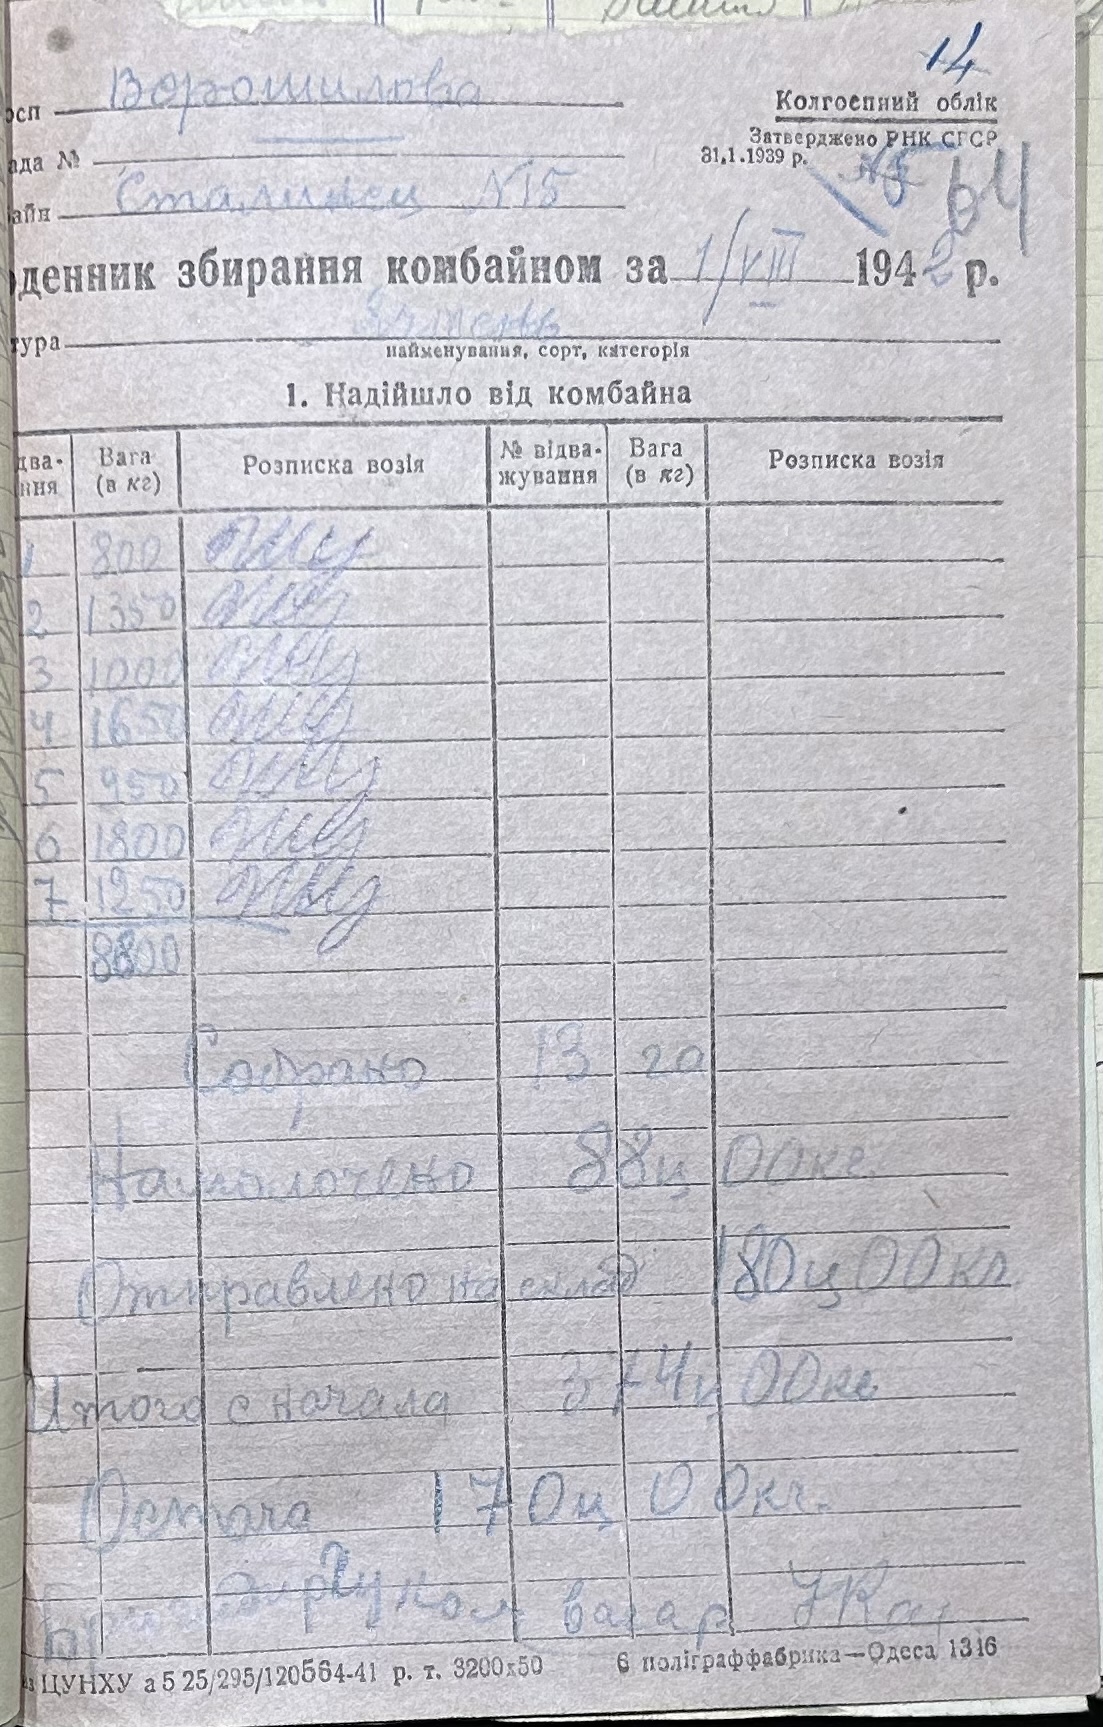 14
осп Ворошилова
Колгоспний облік
Затверджено РНК СРСР
31.1.1939 р.
ада №
№5 64
айн Сталинец N15
денник збирання комбайном за 1/VIII 1942 р.
тура Ячмень
найменування, сорт, категорія
1. Надійшло від комбайна
два- ння Вага (в кг) Розписка возія № відва- жування Вага (в кг) Розписка возія
1 800
2 1350
3 1000
4 1650
5 950
6 1800
7 1250
8800
Собрано 13 га
Намолочено 88ц 00кг
Отправлено на склад 180ц 00кг
Итого с начала 374ц 00кг
Остача 170ц 00кг.
вагар
аз ЦУНХУ а 5 25/295/120564-41 р. т. 3200х50 6 поліграффабрика—Одеса 1316